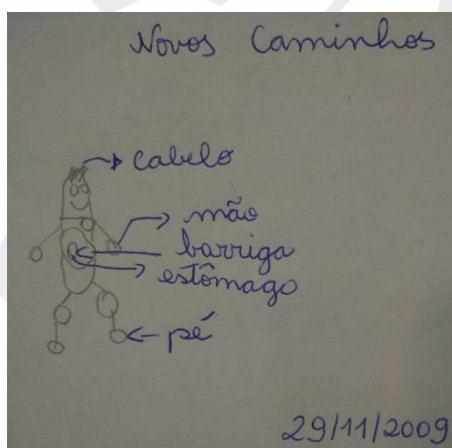 Novos Caminhos
cabelo
mão
barriga
estômago
pé
29/11/2009